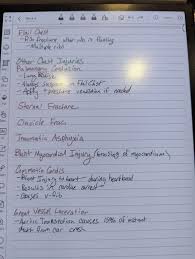 Flail Chest
- Rib fracture, other rib is floating
- Multiple ribs
Other Chest Injuries
Pulmonary Contusion
- Lung Bruise
- Always suspect in Flail Chest
- Assist + pressure ventilation if needed
Sternal Fracture
Clavicle Frac.
Traumatic Asphyxia
Blunt Myocardial Injury (bruising of myocardium)
Commotio Cordis
- Blunt Injury to heart during heartbeat
- Results in cardiac arrest
- Causes v-fib
Great Vessel Laceration
- Aortic
of instant
death from car crash